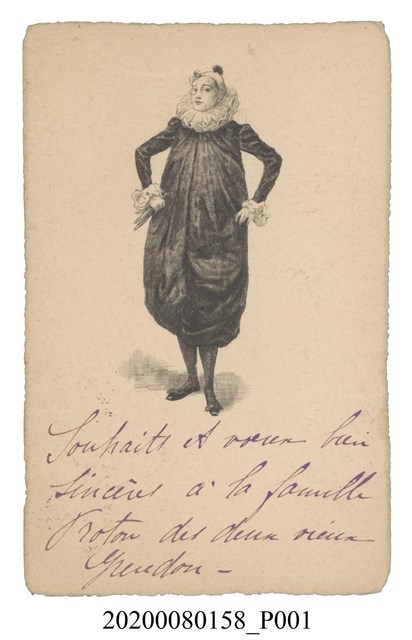 Souhaits et vœux bien
sincères à la famille
Proton des deux vieux
Grendon -
20200080158_P001